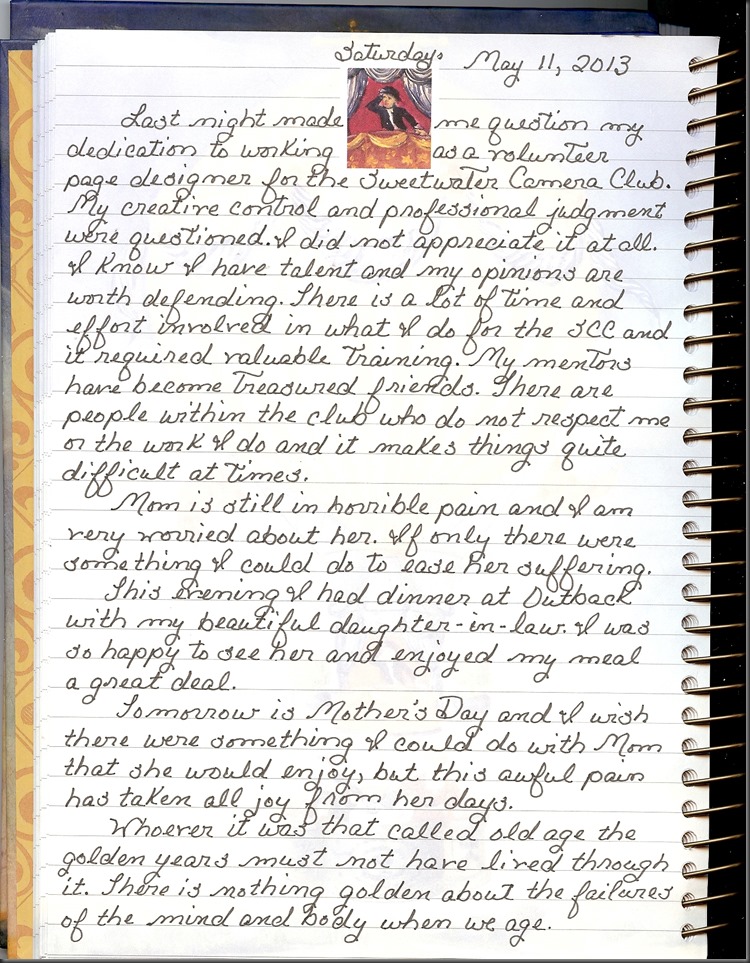 Saturday, May 11, 2013
Last night made me question my
dedication to working as a volunteer
page designer for the Sweetwater Camera Club.
My creative control and professional judgment
were questioned. I did not appreciate it at all.
I know I have talent and my opinions are
worth defending. There is a lot of time and
effort involved in what I do for the SCC and
it required valuable training. My mentors
have become treasured friends. There are
people within the club who do not respect me
or the work I do and it makes things quite
difficult at times.
Mom is still in horrible pain and I am
very worried about her. If only there were
something I could do to ease her suffering.
This evening I had dinner at Outback
with my beautiful daughter-in-law. I was
so happy to see her and enjoyed my meal
a great deal.
Tomorrow is Mother's Day and I wish
there were something I could do with Mom
that she would enjoy, but this awful pain
has taken all joy from her days.
Whoever it was that called old age the
golden years must not have lived through
it. There is nothing golden about the failures
of the mind and body when we age.